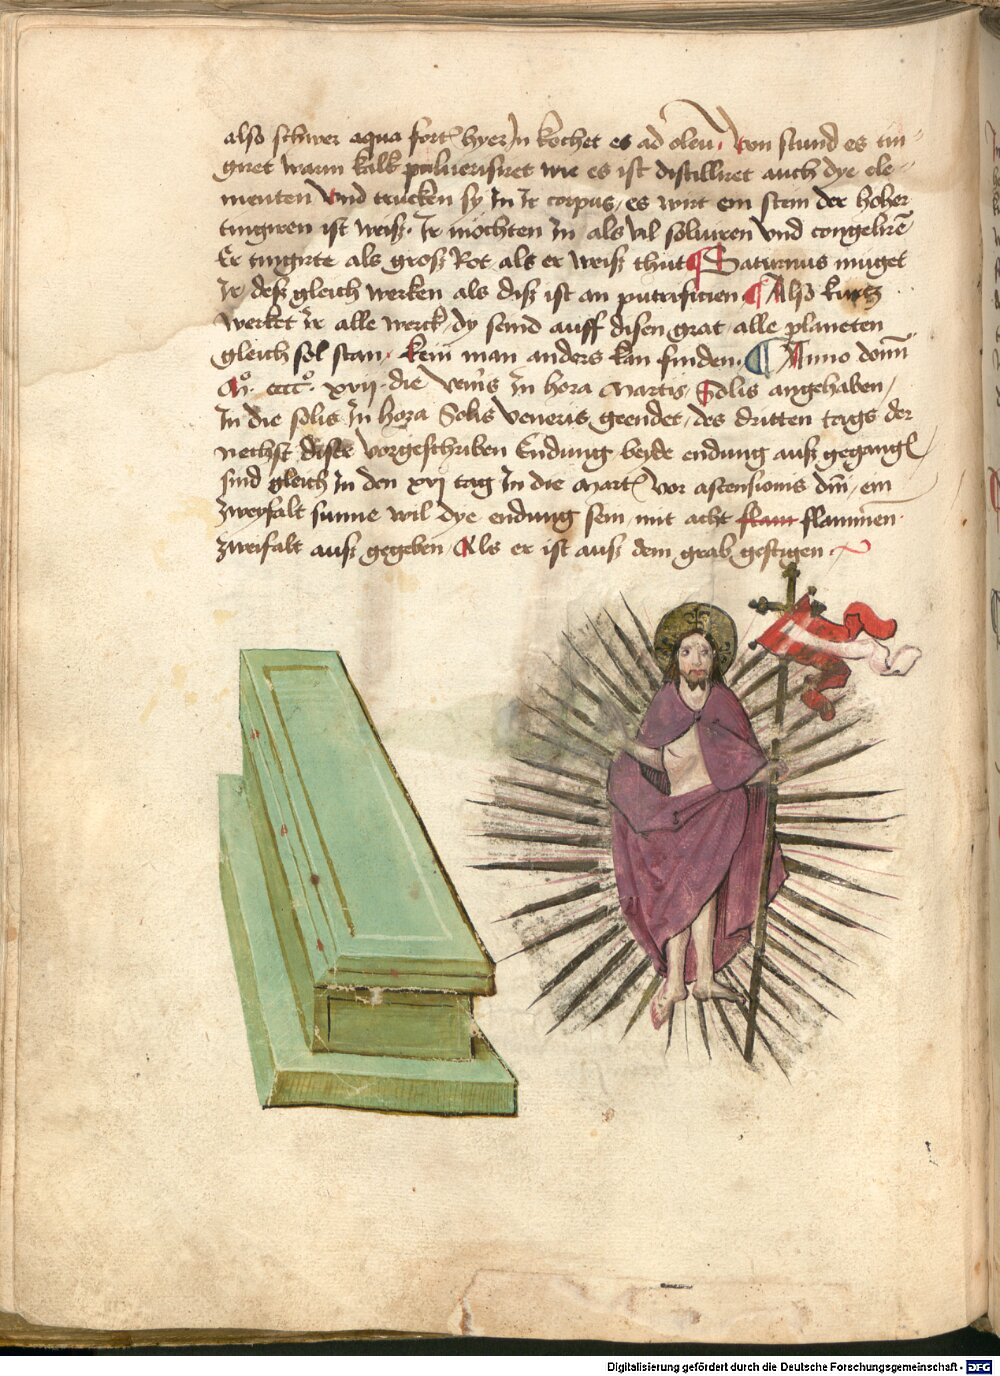 also schwer aqua fort hyer in kochet es ad oleu. von stund es tin-
giret warm kalb puluerisiret wie es ist distilliret auch dye ele-
menten vnd trucken sy in Ir corpus, es wirt ein stein der hoher
tingiren ist weiß. Ir mochten in als val soluiren vnd congelirē
Er tingirte als groß Rot als er weiß thut ¶ Saturnus muget
Ir deß gleich werken als diß ist an putrificien ¶ Also kurtz
werket ir alle werck, dy seind auff disen grat, alle planeten
gleich sol stan. kein man anders kan finden. ¶ Anno domī
Mº. ccccº. xvij. die vem̄s in hora martis, Solis angehaben,
In die solis in hora Solis veneris geendet, des dritten tags der
nechst diser vorgeschriben Endung beyde endung auß gegangē
sind gleich in den xvj tag in die mart vor ascensionis dm̄, ein
zweyfalt sunne wil dye endung sein, mit acht flam flammen
zweifalt auß gegeben, Als er ist auß dem grab gestigen
Digitalisierung gefördert durch die Deutsche Forschungsgemeinschaft - DFG